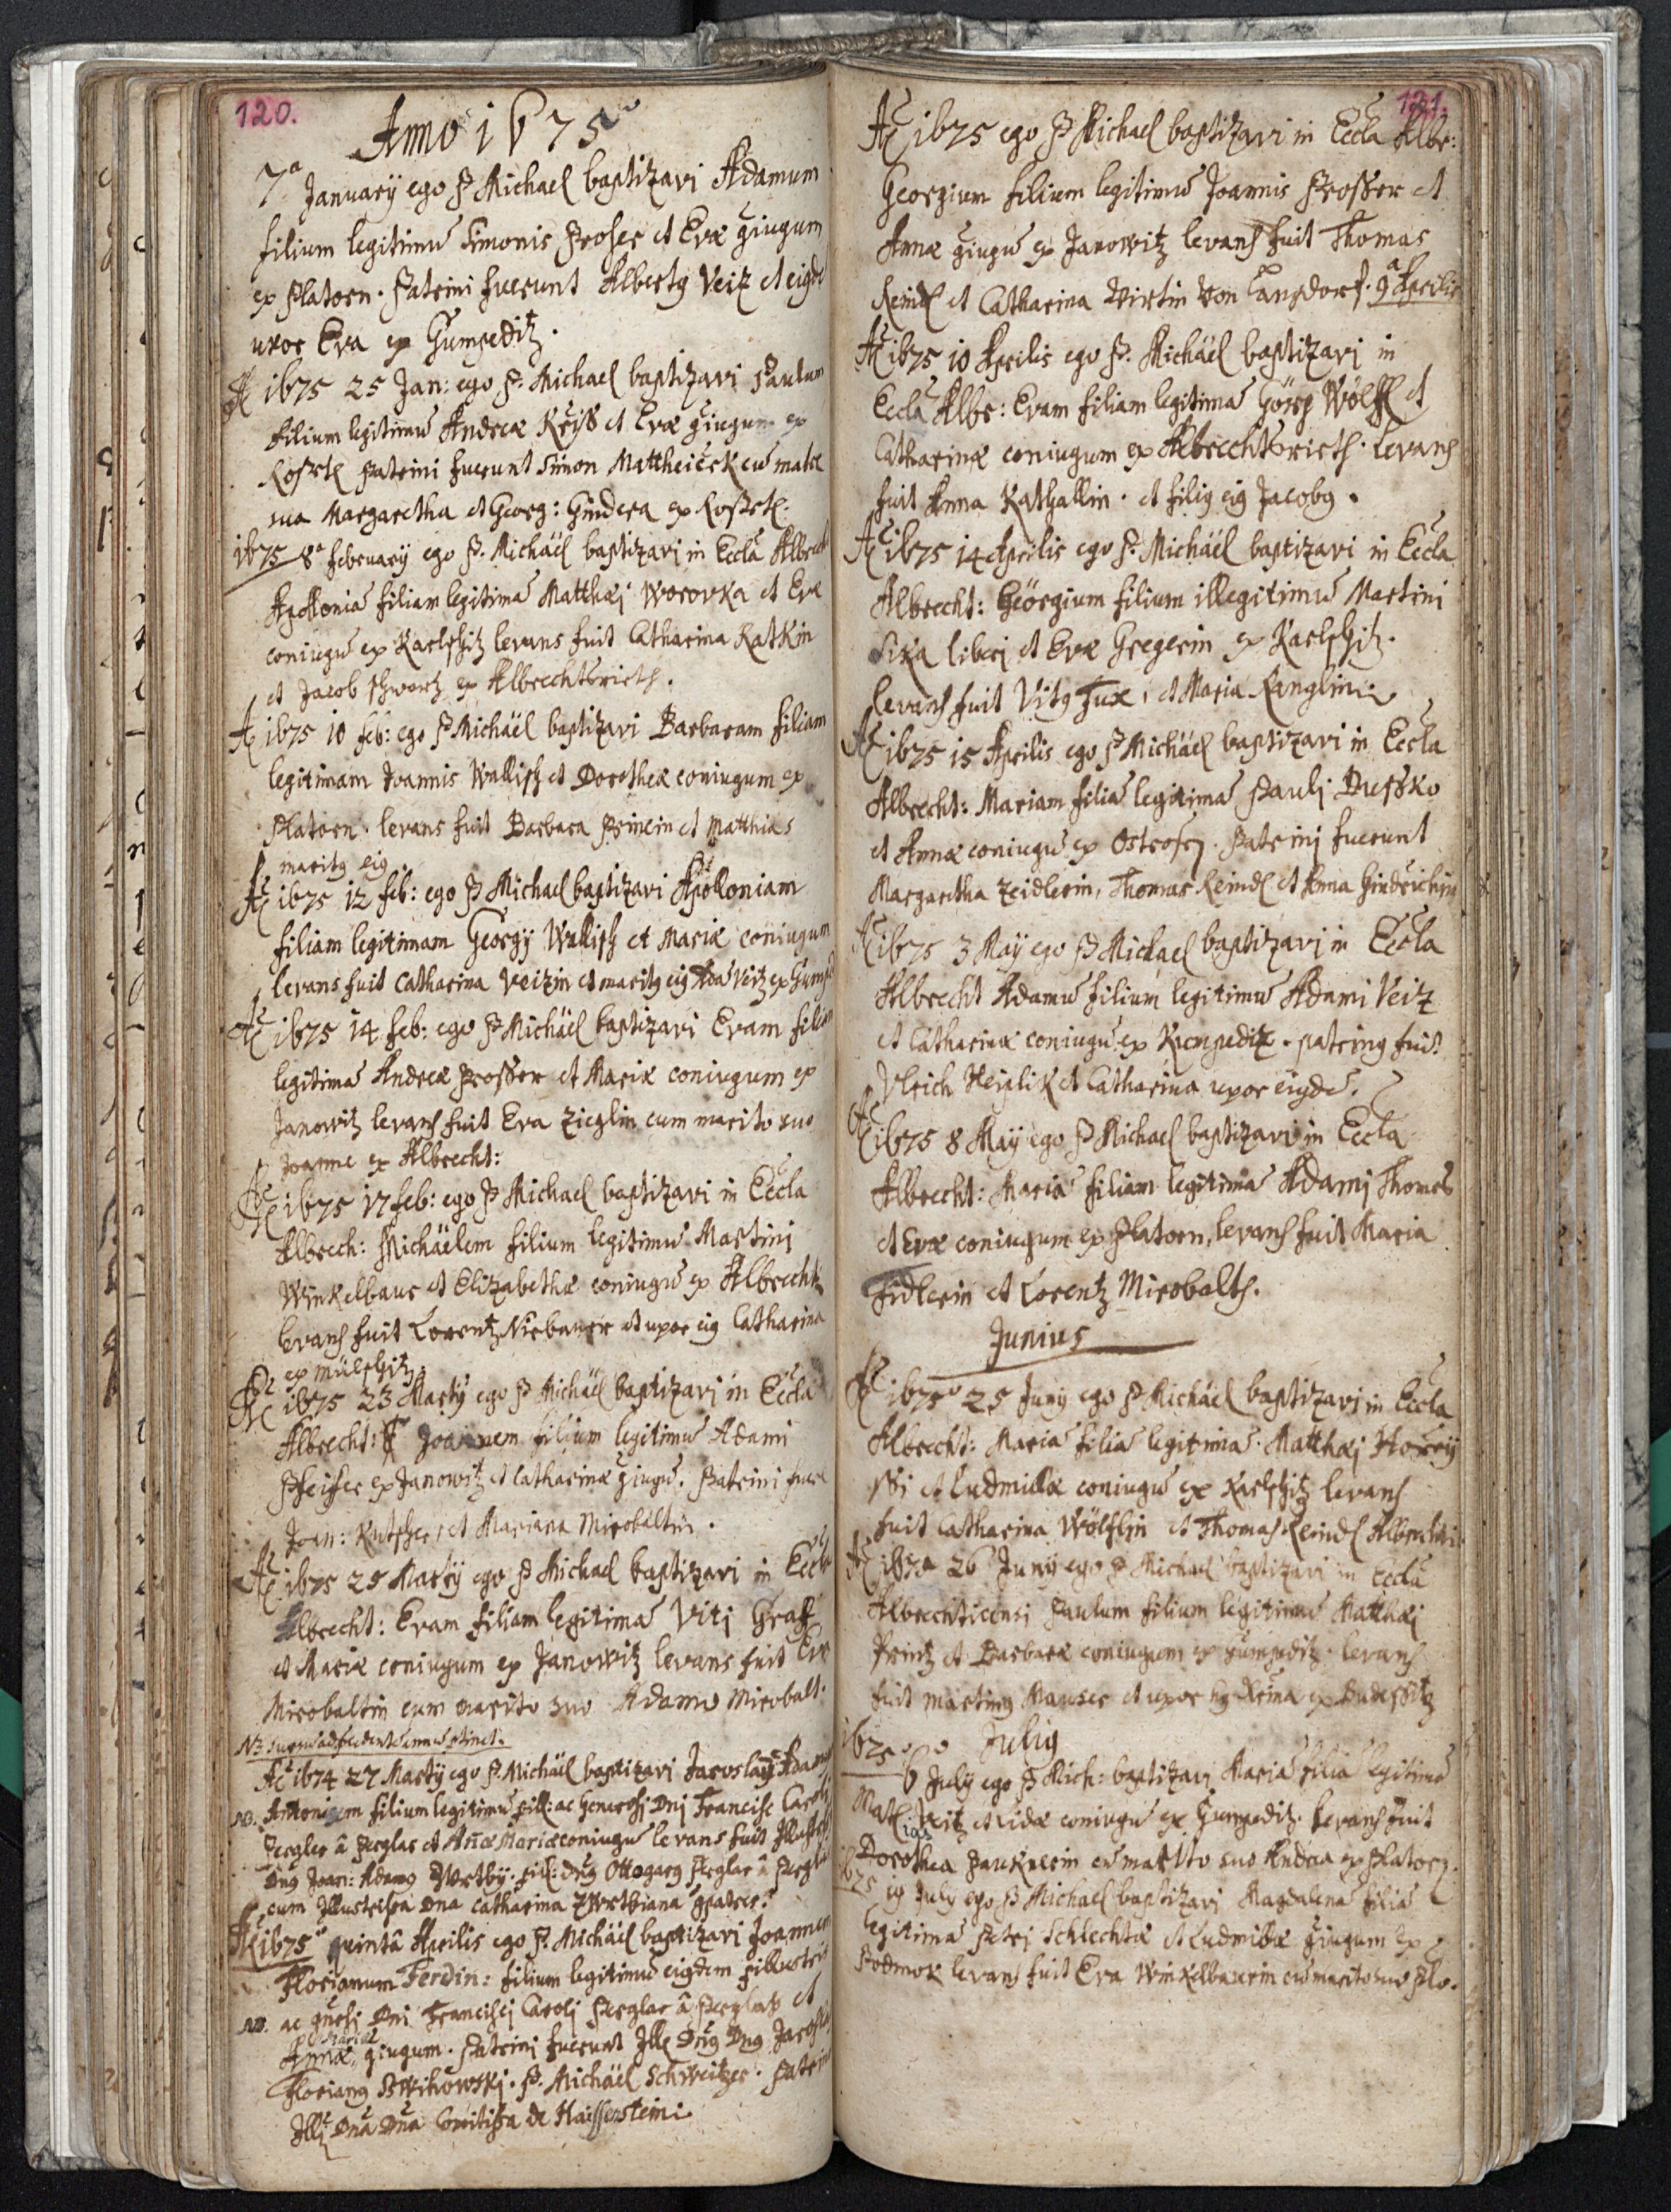 120.
Anno 1675
7a January ego P Michael baptizavi Adamum
filium legitimũ Simonis Proser et Evæ giugum
ex Platorn. Patrini fuerunt Albertg Veiz et eigd
uxor Eva ex Gumpeditz.
Ao 1675 25 Jan: ego P. Michael baptizavi Paulum
filium legitimũ Andreæ et Evæ giugum ex
Patrini fuerunt Simon Mattheiček cũ matre
sua Margaretha et Georg: Gindera ex
1675 8a February ego P. Michäel baptizavi in Eccla Albrecht
Apollonia filiam legitima Matthæj Worovka et Evæ
coniugũ ex Karlshitz levans fuit Catharina Ratkin
et Jacob Schwartz ex Albrechtsrieth.
Ao 1675 10 feb: ego P Michäel baptizavi Barbaram filiam
legitimam Joannis Wallish et Dorotheæ coniugum ex
Platorn. levans fuit Barbara Princin et Matthias
maritg eig
Ao 1675 12 feb: ego P Michael baptizavi Apolloniam
filiam legitimam Georgy Wallish et Mariæ coniugum
levans fuit Catharina Veizin et maritg eig Adã Veitz ex Gump
Ao 1675 14 feb: ego P Michäel baptizavi Evam filiam
legitimã Andreæ Prosser et Mariæ coniugum ex
Janowitz levans fuit Eva Zieglin cum marito suo
Joanne ex Albrecht:
Ao 1675 17 feb: ego P Michael baptizavi in Eccla
Albrech: Michäelem filium legitimũ Martini
Winkelbaur et Elizabethæ coniugũ ex Albrecht
levans fuit Lorentz Niebauer et uxor eig Catharina
ex Mülshitz.
Ao 1675 23 Marty ego P Michäel baptizavi in Eccla
Albrecht: Joannem filium legitimũ Adami
Pfeifer ex Janowitz et Catharinæ giugũ. Patrini fuer
Joan: Kutsher, et Mariana Mirobaltin.
Ao 1675 25 Marty ego P Michael baptizavi in Eccla
Albrecht: Evam filiam legitimã Vitj Graff
et Mariæ coniugum ex Janowitz levans fuit Eva
Mirobaltin cum marito suo Adamo Mirobalt.
Ao 1674 27 Marty ego P. Michäel baptizavi Jaroslaũ Adam
NB. Antonium filium legitimũ Pill: ac Generosi Dnj Francisc Carolj
Perglar â Perglas et Añæ Mariæ coniugũ levans fuit Illustr
Dng Joan: Adamg Wrtby. Pill: Dng Ottogarg Perglar â Pergla
cum Illustrissa Dna Catharina Wrtbiana
Ao 1675 quintâ Aprilis ego P. Michäel baptizavi Joannem
Florianum Ferdin: filium legitimũ eigdem Pillustris
NB. ac gnũsi Dni Franciscj Carolj Perglar â Perglas et
Annæ Mariæ giugum. Patrini fuerunt Ill Dng Dng Jarosla
Floriang. P. Michäel Schweitzer. Patrina
Ill Dna Dna Comitissa de Haissenstein.
121.
Ao 1675 ego P Michael baptizavi in Eccla Albr:
Georgium filium legitimũ Joannis Prosser et
Annæ giugũ ex Janowitz levans fuit Thomas
Reindl et Catharina Wirtin von Langdorf. 9a Aprilis
Ao 1675 10 Aprilis ego P. Michäel baptizavi in
Eccla Albr: Evam filiam legitimã Görg Wölfl et
Catharinæ coniugum ex Albrechtsrieth. levans
fuit Anna Kathallin. et filig eig Jacobg.
Ao 1675 14 Aprilis ego P. Michäel baptizavi in Eccla
Albrecht: Geörgium filium illegitimũ Martini
Sika liberj et Evæ Gregerin ex Karlshitz.
levans fuit Vitg Fux, et Maria Langlin
Ao 1675 15 Aprilis ego P Michäel baptizavi in Eccla
Albrecht: Mariam filiã legitimã Paulj Dussko
et Annæ coniugũ ex Ostro. Patrinj fuerunt
Margaretha Zeidlerin, Thomas Reindl et Anna Hindrichin
Ao 1675 3 May ego P Michael baptizavj in Eccla
Albrecht Adamũ filium legitimũ Adami Veiz
et Catharinæ coniugũ ex Kumpeditz. patring fuit
Vlrich Hejzlik et Catharina uxor eigdẽ.
Ao 1675 8 May ego P Michael baptizavi in Eccla
Albrecht: Mariã filiam legitimã Adamj Thomes
et Evæ coniugum ex Platorn, levans fuit Maria
Fidlerin et Lorentz Mirobalth.
Junius
Ao 1675 25 Juny ego P Michäel baptizavj in Eccla
Albrecht: Mariã filiã legitimã Matthæj Horey
ssi et Ludmillæ coniugũ ex Karlshitz levans
fuit Catharina Wölflin et Thomas Reindl Albrechti
Ao 1675 26 Juny ego P Michael baptizavi in Eccla
Albrechticensi Paulum filium legitimũ Matthæj
Printz et Barbaræ coniugum ex Gumpeditz. levans
fuit Marting Mauser et uxor
1675 Julig
6 July ego P Mich: baptizavi Mariã filiã legitimã
Mathias Veitz et Lidæ coniugũ ex Gumpeditz. levans fuit
Dorothea Pauknerin cũ marito suo Andrea ex Platorn.
1675 19 July ego P Michael baptizavi Magdalena filiã
legitimã Petrj Schlechtæ et Ludmilæ giugum ex
Podmok levans fuit Eva Winkelbaurin cũ marito suo Flo.